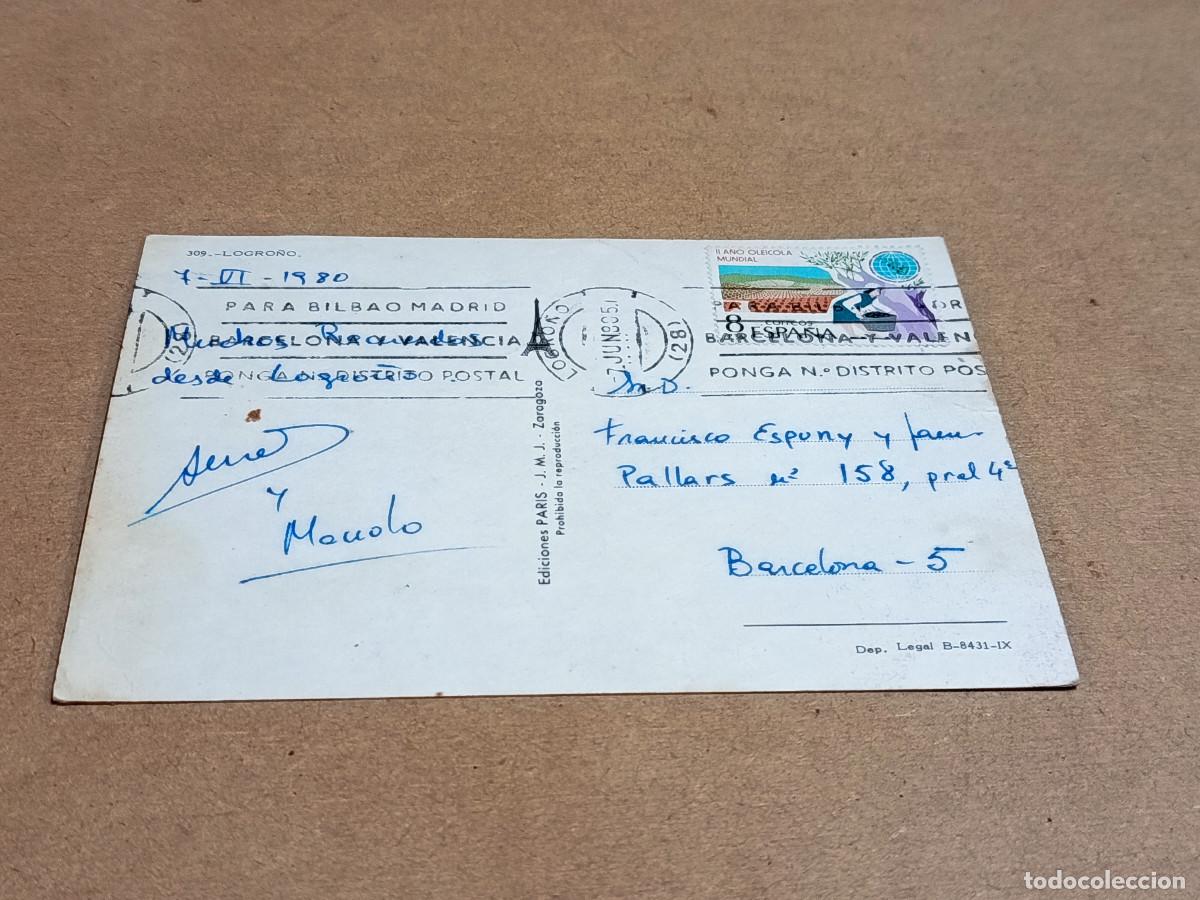 309.-LOGROÑO.
7-VI-1980
PARA BILBAO MADRID
BARCELONA Y VALENCIA
PONGA N.º DISTRITO POSTAL
Muchos Recuerdos
desde Logroño.
y
Manolo
Ediciones PARIS - J. M. J. - Zaragoza
Prohibida la reproducción
LOGROÑO
7 JUN
(28)
II AÑO OLEICOLA
MUNDIAL
8
CORREOS
ESPAÑA
BARCELONA Y VALEN
PONGA N.º DISTRITO POS
Francisco Espuny y
Pallars nº 158, pral 4ª
Barcelona - 5
Dep. Legal B-8431-IX
todocoleccion